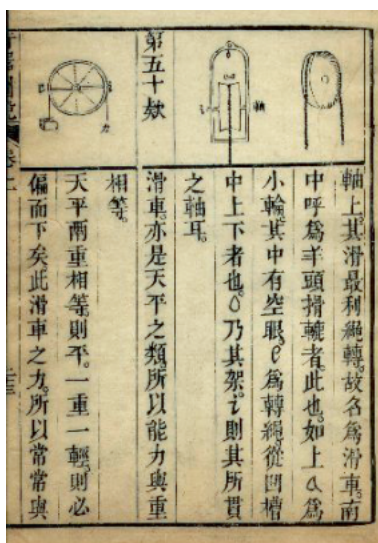 軸
軸上。其滑最利繩轉。故名爲滑車。南
中呼爲羊頭搰轆者。此也。如上a爲
小輪。其中有空眼。e爲轉繩。從凹槽
中上下者也。o乃其架。i則其所貫
之軸耳。
第五十欵
力
滑車。亦是天平之類。所以能力與重
相等。
天平兩重相等則平。一重一輕則必
偏而下矣。此滑車之力。所以常常與